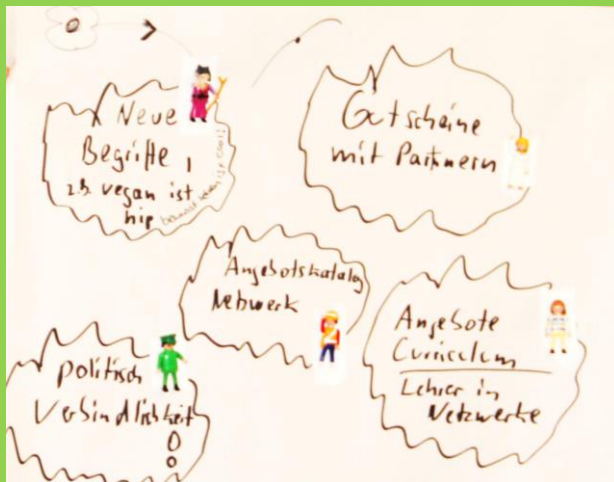 Neue
Begriffe,
z.b. vegan ist
hip
Gutscheine
mit Partnern
Angebotskatalog
Netzwerk
Angebote
Curriculum
Lehrer in
Netzwerke
politisch
Verbindlichkeit